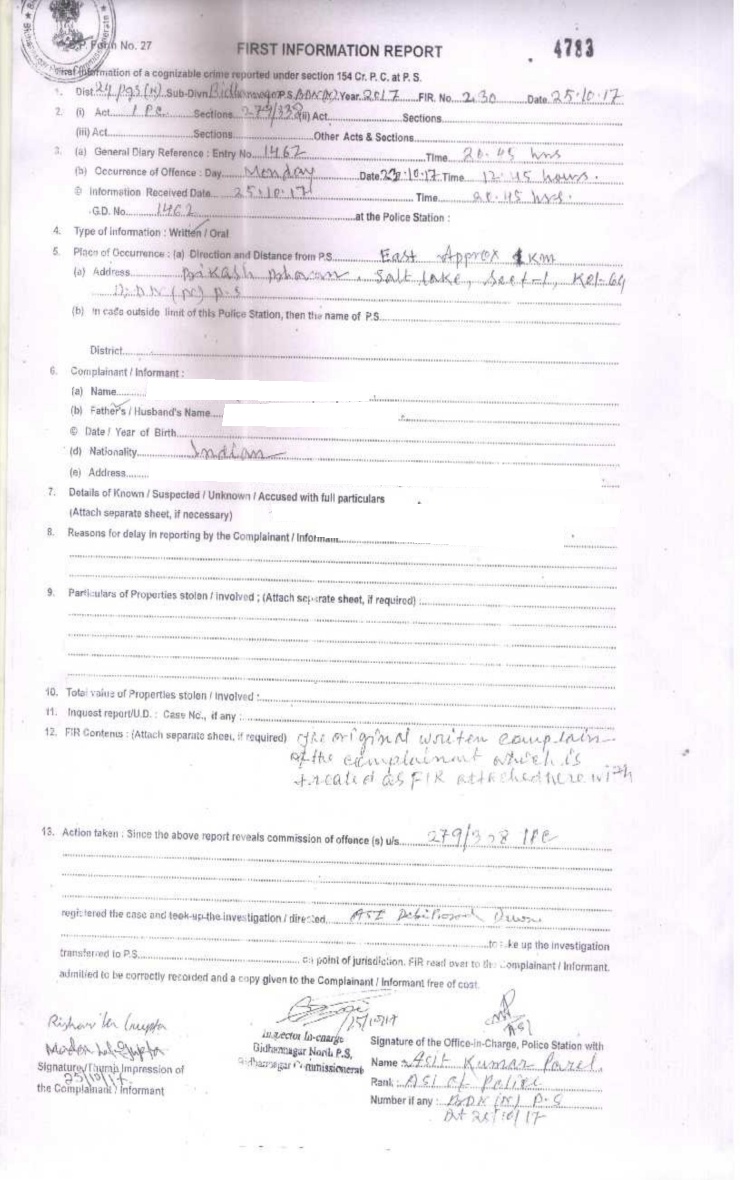 Form No. 27
FIRST INFORMATION REPORT
4783
First Information of a cognizable crime reported under section 154 Cr. P. C. at P. S.
1. Dist. 24 Pgs (N) Sub-Divn. Bidhannagar P.S. BDN(N) Year. 2017 FIR. No. 230 Date. 25.10.17
2. (i) Act. IPC Sections. 279/338 (ii) Act. Sections.
(iii) Act. Sections. Other Acts & Sections.
3. (a) General Diary Reference : Entry No. 1462 Time. 20.45 hrs
(b) Occurrence of Offence : Day. Monday Date 23.10.17 Time 12.45 hours.
© Information Received Date. 25.10.17 Time 20.45 hrs.
G.D. No. 1462 at the Police Station :
4. Type of information : Written / Oral
5. Place of Occurrence : (a) Direction and Distance from P.S. East Approx 1 Km
(a) Address Bikash Bhavan, Salt Lake, Sect-1, Kol-64
BDN (N) P.S
(b) In case outside limit of this Police Station, then the name of P.S.
District
6. Complainant / Informant :
(a) Name
(b) Father's / Husband's Name
© Date / Year of Birth
(d) Nationality Indian
(e) Address
7. Details of Known / Suspected / Unknown / Accused with full particulars
(Attach separate sheet, if necessary)
8. Reasons for delay in reporting by the Complainant / Informant
9. Particulars of Properties stolen / involved ; (Attach separate sheet, if required) :
10. Total value of Properties stolen / Involved :
11. Inquest report/U.D. : Case No., if any :
12. FIR Contents : (Attach separate sheet, if required) The original writen complain
of the complainant which is
treated as FIR attached herewith
13. Action taken : Since the above report reveals commission of offence (s) u/s. 279/338 IPC
registered the case and took-up-the investigation / directed ASI
to take up the investigation
transferred to P.S. on point of jurisdiction. FIR read over to the Complainant / Informant.
admitted to be correctly recorded and a copy given to the Complainant / Informant free of cost.
25/10/17
ASI
Madan Lal Gupta
Inspector In-charge
Bidhannagar North P.S,
Bidhannagar Commissionerate
Signature/Thumb Impression of
25/10/17
the Complainant / Informant
Signature of the Office-in-Charge, Police Station with
Name : Asit Kumar
Rank : ASI of Police
Number if any : BDN (N) P.S
Dt 25/10/17